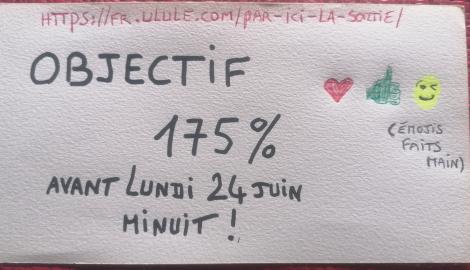 HTTPS://FR.ULULE.COM/PAR-ICI-LA-SORTIE/
OBJECTIF
175%
AVANT LUNDI 24 JUIN
MINUIT !
(ÉMOJIS
FAITS
MAIN)